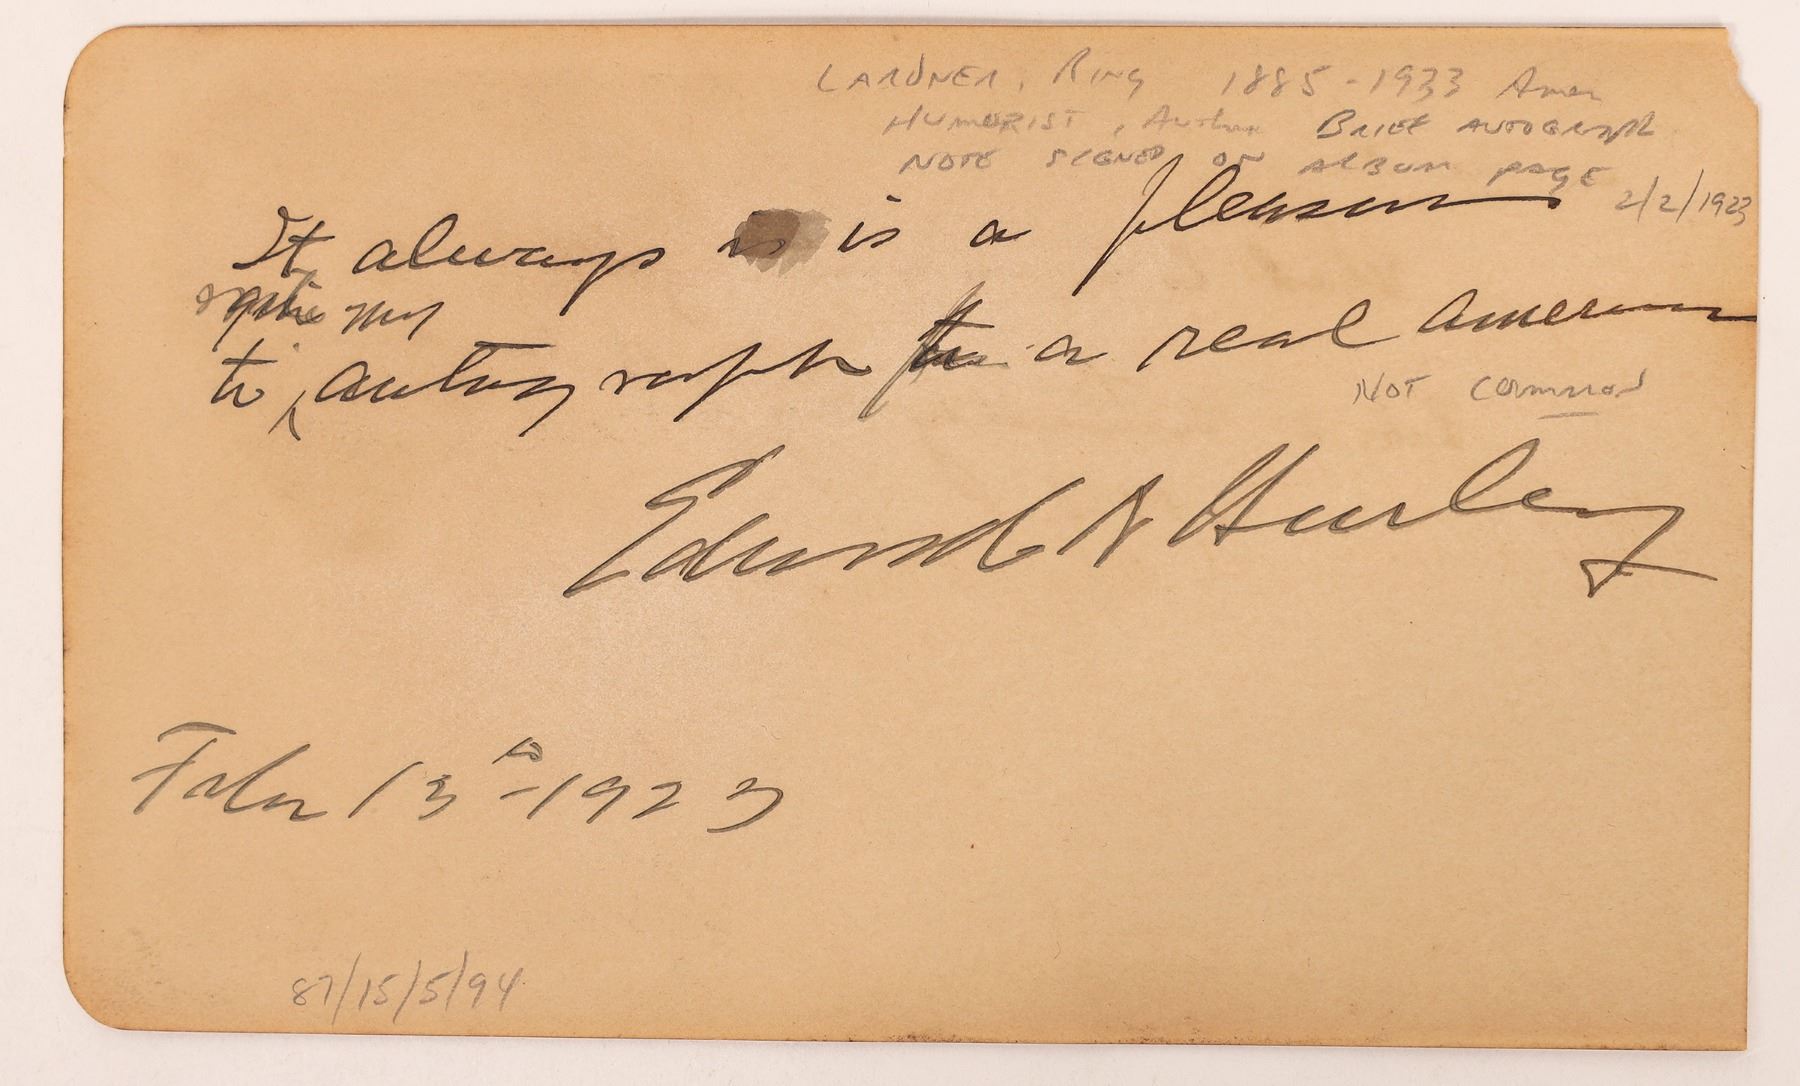 LARDNER, Ring 1885-1933 Amer
HUMORIST, Author BRIEF AUTOGRAPH
NOTE SIGNED ON ALBUM PAGE
2/2/1923
It always is is a pleasure
my
to autograph a real American
NOT COMMON
Edward N Hurley
Febr 13 - 1923
87/15/5/94